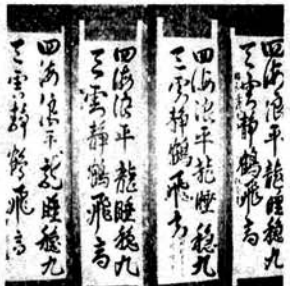 四海浪平龍睡穏九
天雲静鶴飛高
四海浪平龍睡穏九
天雲静鶴飛高
四海浪平龍睡穏九
天雲静鶴飛高
四海浪平龍睡穏九
天雲静鶴飛高